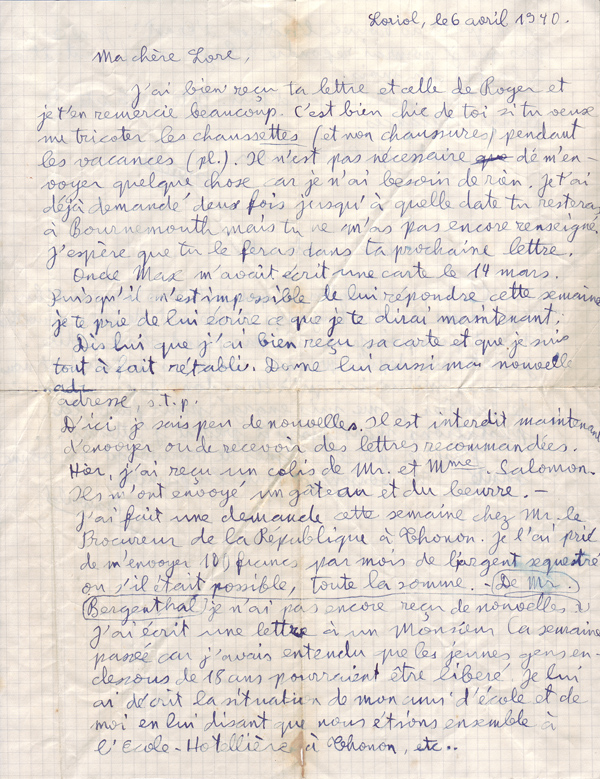 Loriol, le 6 avril 1940.
Ma chère Lore,
J'ai bien reçu ta lettre et celle de Roger et
je t'en remercie beaucoup. C'est bien chic de toi si tu veux
me tricoter les chaussettes (et non chaussures) pendant
les vacances (pl.). Il n'est pas nécessaire que de m'en-
voyer quelque chose car je n'ai besoin de rien. Je t'ai
déjà demandé deux fois jusqu'à quelle date tu resteras
à Bournemouth mais tu ne m'as pas encore renseigné.
J'espère que tu le feras dans ta prochaine lettre.
Oncle Max m'avait écrit une carte le 14 mars.
Puisqu'il m'est impossible de lui répondre cette semaine
je te prie de lui écrire ce que je te dirai maintenant:
Dis lui que j'ai bien reçu sa carte et que je suis
tout à fait rétabli. Donne lui aussi ma nouvelle
adr
adresse, s.t.p.
D'ici je sais peu de nouvelles. Il est interdit maintenant
d'envoyer ou de recevoir des lettres recommandées.
Hier, j'ai reçu un colis de Mr. et Mme. Salomon.
Ils m'ont envoyé un gâteau et du beurre. –
J'ai fait une demande cette semaine chez Mr. le
Procureur de la République à Thonon. Je l'ai prié
de m'envoyer 100 francs par mois de l'argent sequestré
ou s'il était possible, toute la somme. - De Mr.
Bergenthal je n'ai pas encore reçu de nouvelles
J'ai écrit une lettre à un Monsieur la semaine
passée car j'avais entendu que les jeunes gens en-
dessous de 18 ans pourraient être libéré. Je lui
ai décrit la situation de mon ami d'école et de
moi en lui disant que nous étions ensemble à
l'Ecole-Hotellière à Thonon, etc..